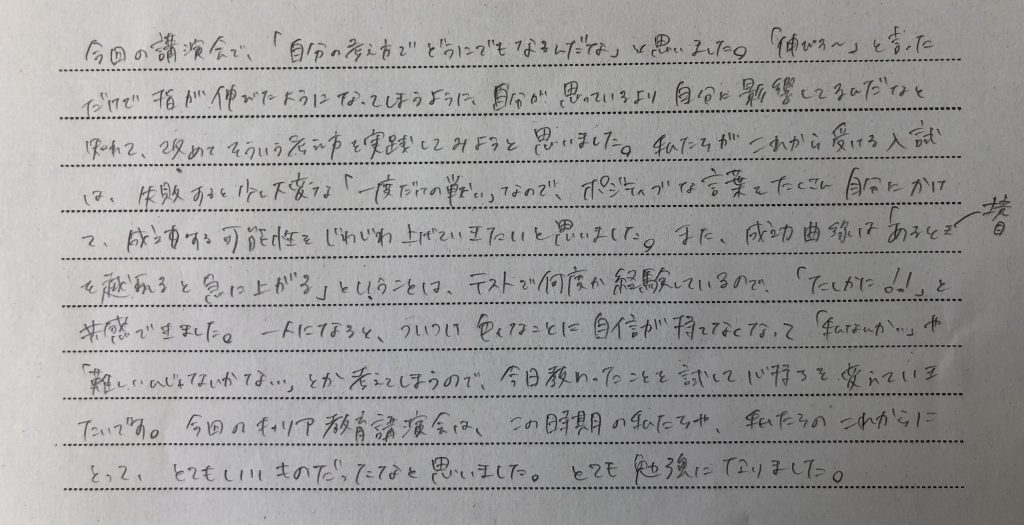 今回の講演会で、「自分の考え方でどうにでもなるんだな」と思いました。「伸びろ〜」と言った
だけで指が伸びたようになってしまうように、自分が思っているより自分に影響してるんだなと
思えて、改めてそういう考え方を実践してみようと思いました。私たちがこれから受ける入試
は、失敗すると少し大変な「一度だけの戦い」なので、ポジティブな言葉をたくさん自分にかけ
て、成功する可能性をじわじわ上げていきたいと思いました。また、成功曲線は「あるとき
を越えると急に上がる」ということは、テストで何度か経験しているので、「たしかに!!」と
共感できました。一人になると、ついつい色々なことに自信が持てなくなって「私なんか…」や
「難しいんじゃないかな…」とか考えてしまうので、今日教わったことを試して心持ちを変えていき
たいです。今回のキャリア教育講演会は、この時期の私たちや、私たちのこれからに
とって、とてもいいものだったなと思いました。とても勉強になりました。